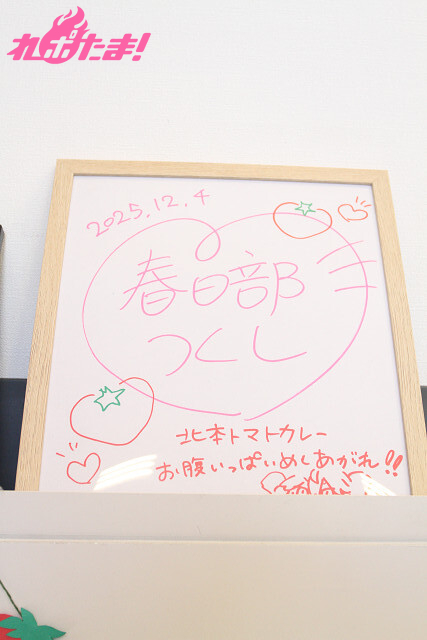 れポたま!
2025.12.4
春日部
つくし
北本トマトカレー
お腹いっぱいめしあがれ!!